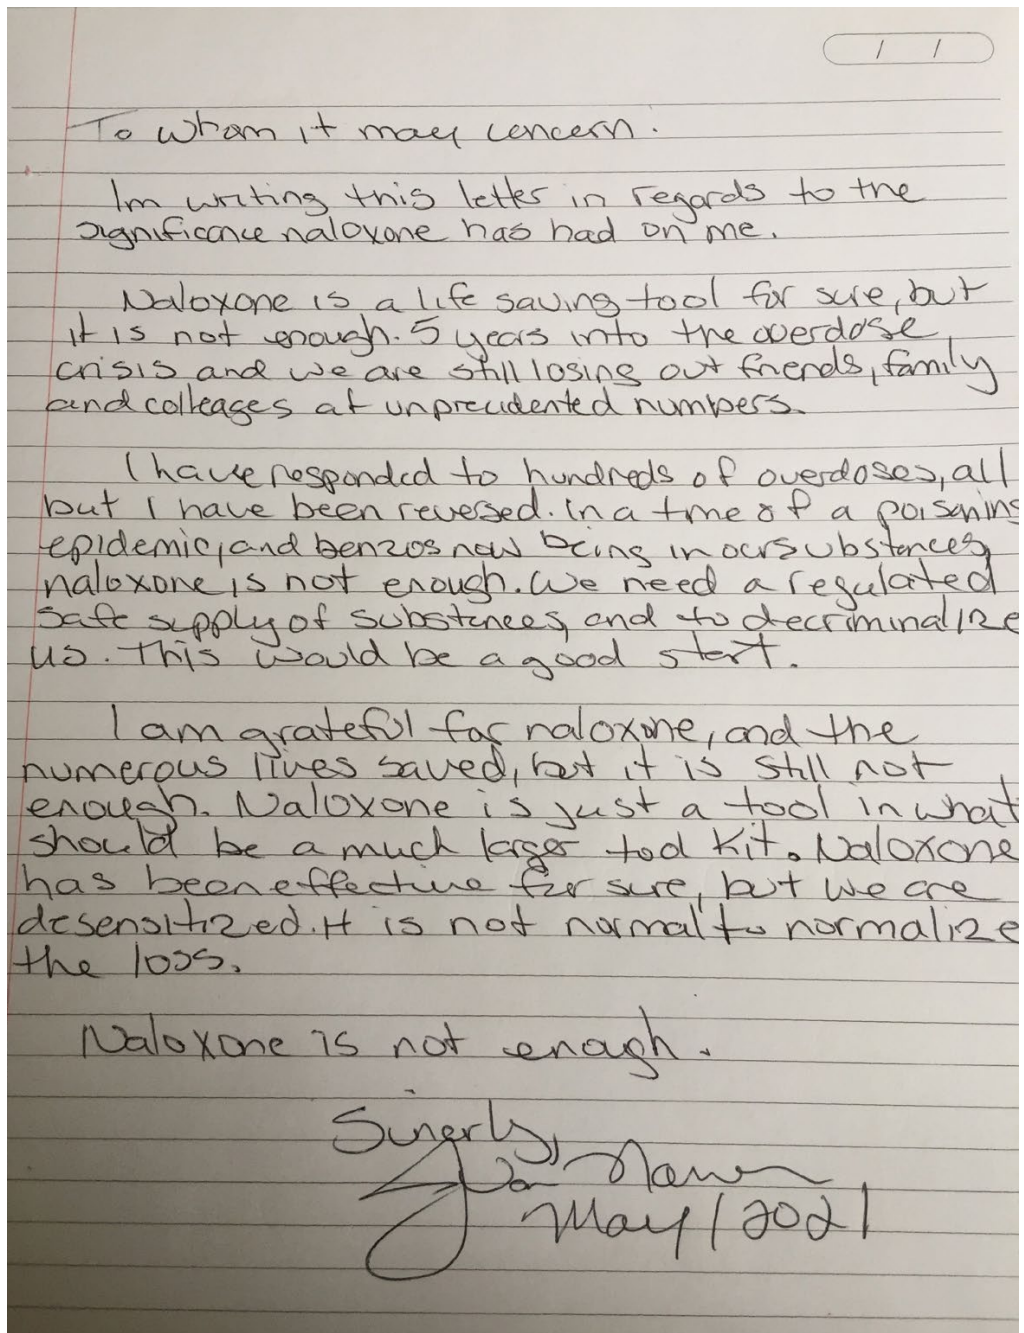 / /
To whom it may concern.
Im writing this letter in regards to the
significance naloxone has had on me.
Naloxone is a life saving tool for sure, but
it is not enough. 5 years into the overdose
crisis and we are still losing out friends, family
and colleages at unprecidented numbers.
I have responded to hundreds of overdoses, all
but 1 have been reversed. In a time of a poisening
epidemic, and benzos now being in our substences,
naloxone is not enough. We need a regulated
safe supply of substences, and to decriminalize
us. This would be a good start.
I am grateful for naloxone, and the
numerous lives saved, but it is still not
enough. Naloxone is just a tool in what
should be a much larger tool kit. Naloxone
has been effective for sure, but we are
desensitized. It is not normal to normalize
the loss.
Naloxone is not enough.
Sinerly,
May / 2021